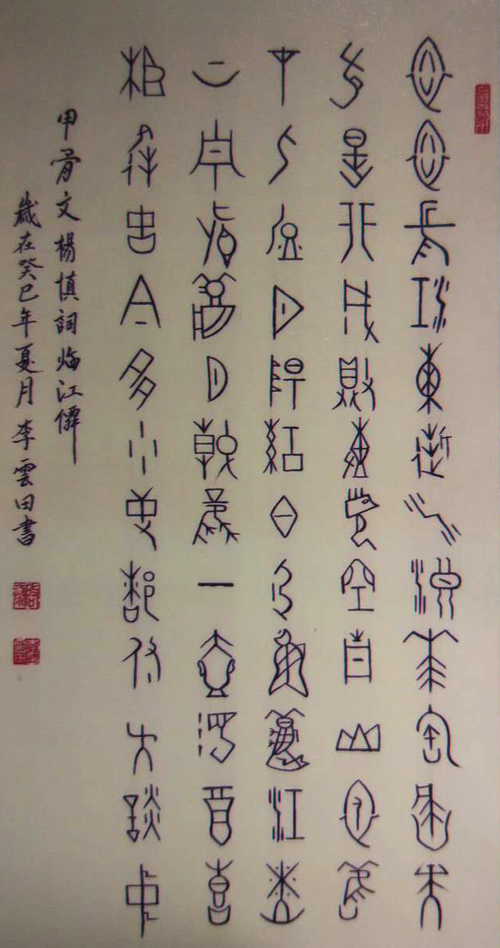 滾滾長江東逝水浪花淘盡英
雄是非成敗轉頭空青山依舊
在幾度夕陽紅白髮漁樵江渚
上慣看秋月春風一壺濁酒喜
相逢古今多少事都付笑談中
甲骨文楊慎詞臨江僊
歲在癸巳年夏月李雲田書